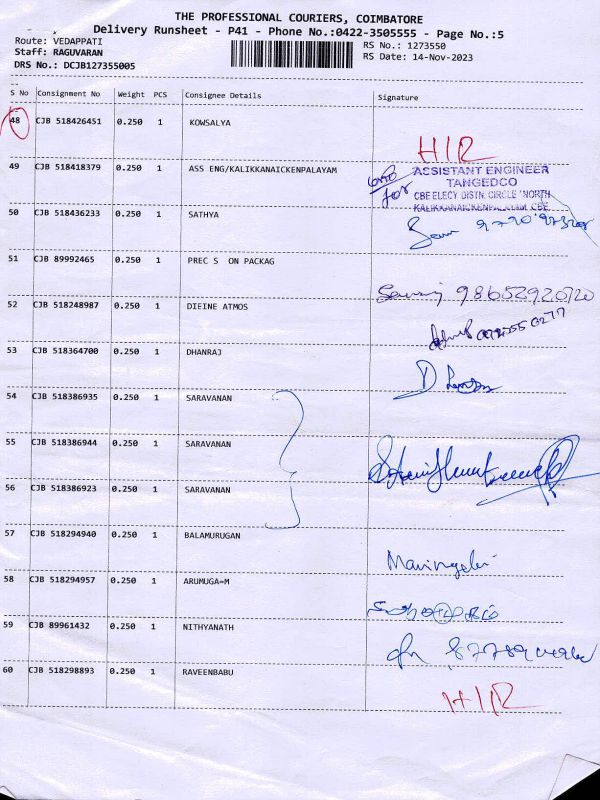 THE PROFESSIONAL COURIERS, COIMBATORE
Delivery Runsheet - P41 - Phone No.:0422-3505555 - Page No.:5
Route: VEDAPPATI
RS No.: 1273550
Staff: RAGUVARAN
RS Date: 14-Nov-2023
DRS No.: DCJB127355005
S No Consignment No Weight PCS Consignee Details Signature
48 CJB 518426451 0.250 1 KOWSALYA
H/R
49 CJB 518418379 0.250 1 ASS ENG/KALIKKANAICKENPALAYAM
for ASSISTANT ENGINEER
TANGEDCO
CBE ELECY DISTN. CIRCLE NORTH
KALIKKANAICKENPALAYAM, CBE.
50 CJB 518436233 0.250 1 SATHYA
51 CJB 89992465 0.250 1 PREC S ON PACKAG
52 CJB 518248987 0.250 1 DIEINE ATMOS
53 CJB 518364700 0.250 1 DHANRAJ
54 CJB 518386935 0.250 1 SARAVANAN
55 CJB 518386944 0.250 1 SARAVANAN
56 CJB 518386923 0.250 1 SARAVANAN
57 CJB 518294940 0.250 1 BALAMURUGAN
58 CJB 518294957 0.250 1 ARUMUGA=M
59 CJB 89961432 0.250 1 NITHYANATH
60 CJB 518298893 0.250 1 RAVEENBABU
H/R